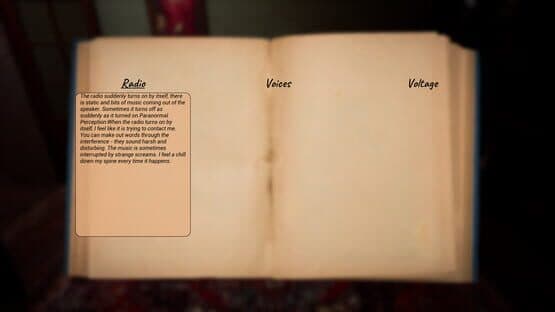 Radio
Voices
Voltage
The radio suddenly turns on by itself, there
is static and bits of music coming out of the
speaker. Sometimes it turns off as
suddenly as it turned on Paranormal
Perception:When the radio turns on by
itself, I feel like it is trying to contact me.
You can make out words through the
interference - they sound harsh and
disturbing. The music is sometimes
interrupted by strange screams. I feel a chill
down my spine every time it happens.